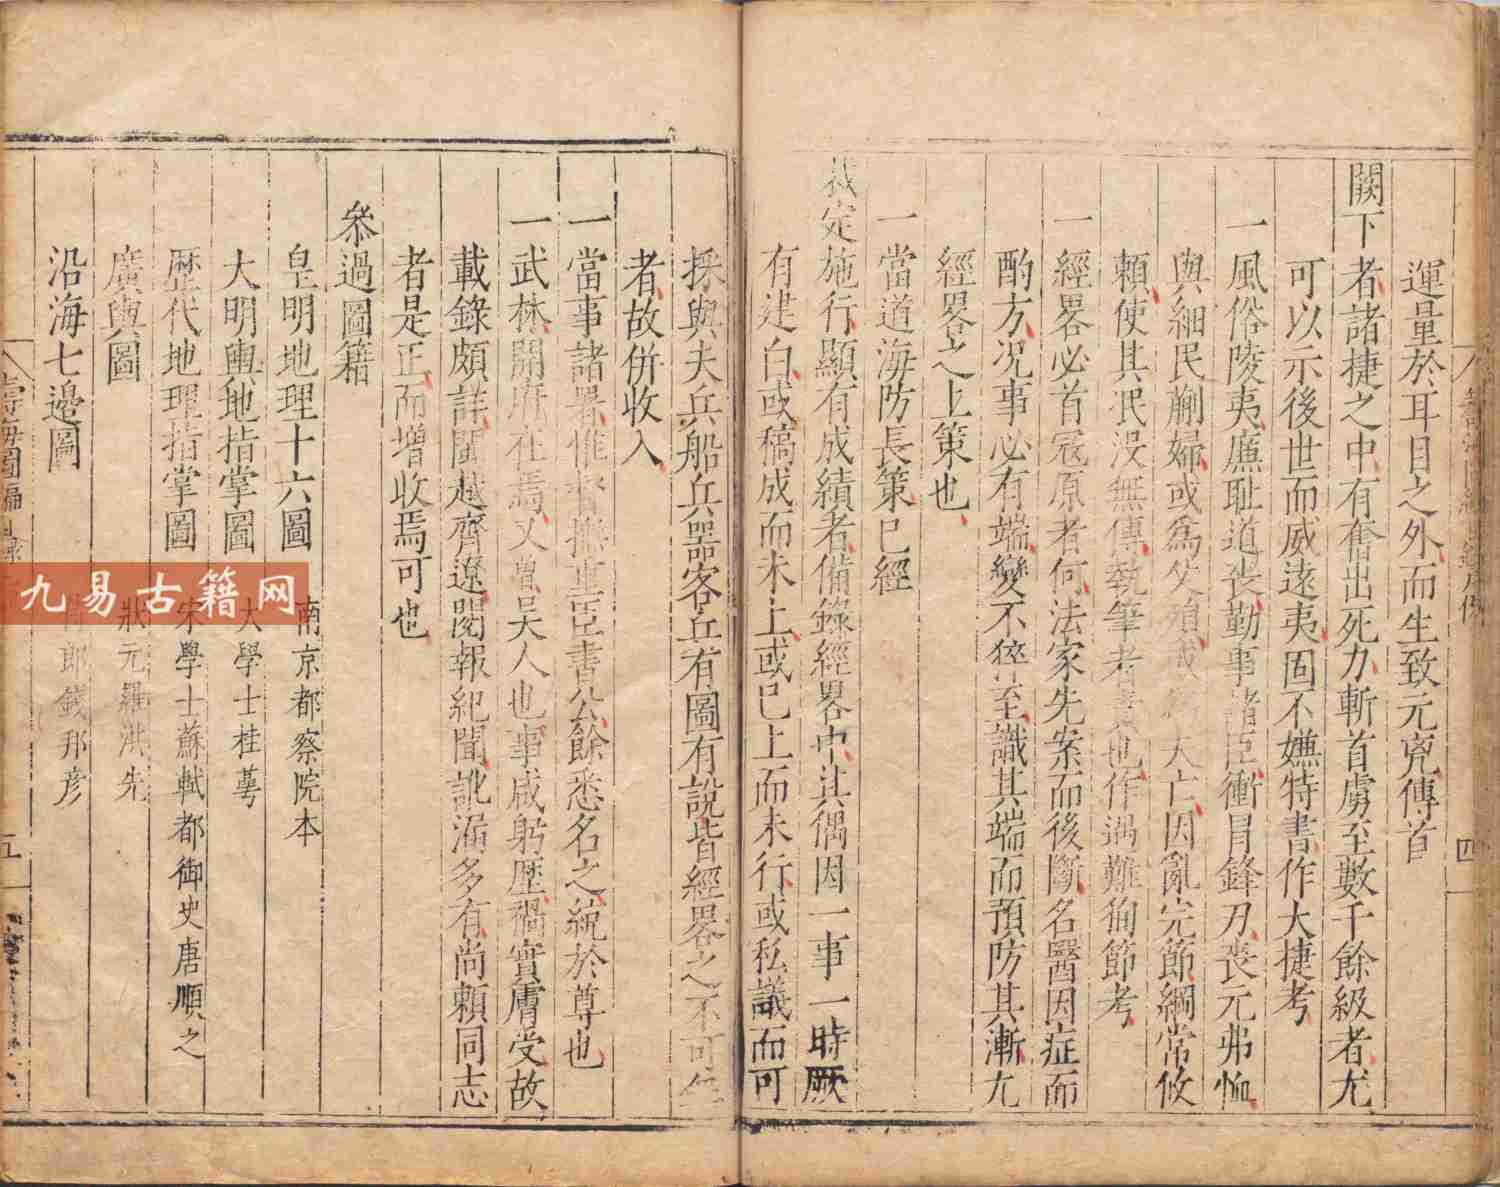 運量於耳目之外而生致元兇傳首
闕下者諸捷之中有奮出死力斬首虜至數千餘級者尤
可以示後世而威遠夷固不嫌特書作大捷考
一風俗陵夷廉耻道丧勤事諸臣衝冒鋒刃丧元弗恤
與細民蒯婦或爲父殞或爲夫亡因亂完節綱常攸
賴使其泯没無傳執筆者責也作遇難徇節考
經畧必首冦原者何法家先案而後斷名醫因症而
酌方况事必有端變不猝至識其端而預防其漸尤
經畧之上策也
一當道海防長策已經
裁定施行顯有成績者備錄經畧中其偶因一事一時厥
有建白或稿成而未上或已上而未行或私議而可
採與夫兵船兵噐客兵有圖有說皆經畧之不可
者故併收入
一當事諸署惟督撫重臣書公餘悉名之統於尊也
一武林開府在焉又曾吴人也事戚躬歷禍實膚受故
載錄頗詳閩越齊遼閱報紀聞訛漏多有尚賴同志
者是正而增收焉可也
叅過圖籍
皇明地理十六圖 南京都察院本
大明輿地指掌圖 大學士桂萼
歷代地理指掌圖 宋學士蘇軾都御史唐順之
廣輿圖 狀元羅洪先
沿海七邊圖 郎錢邦彦
籌海圖編目錄
四
五
九易古籍网